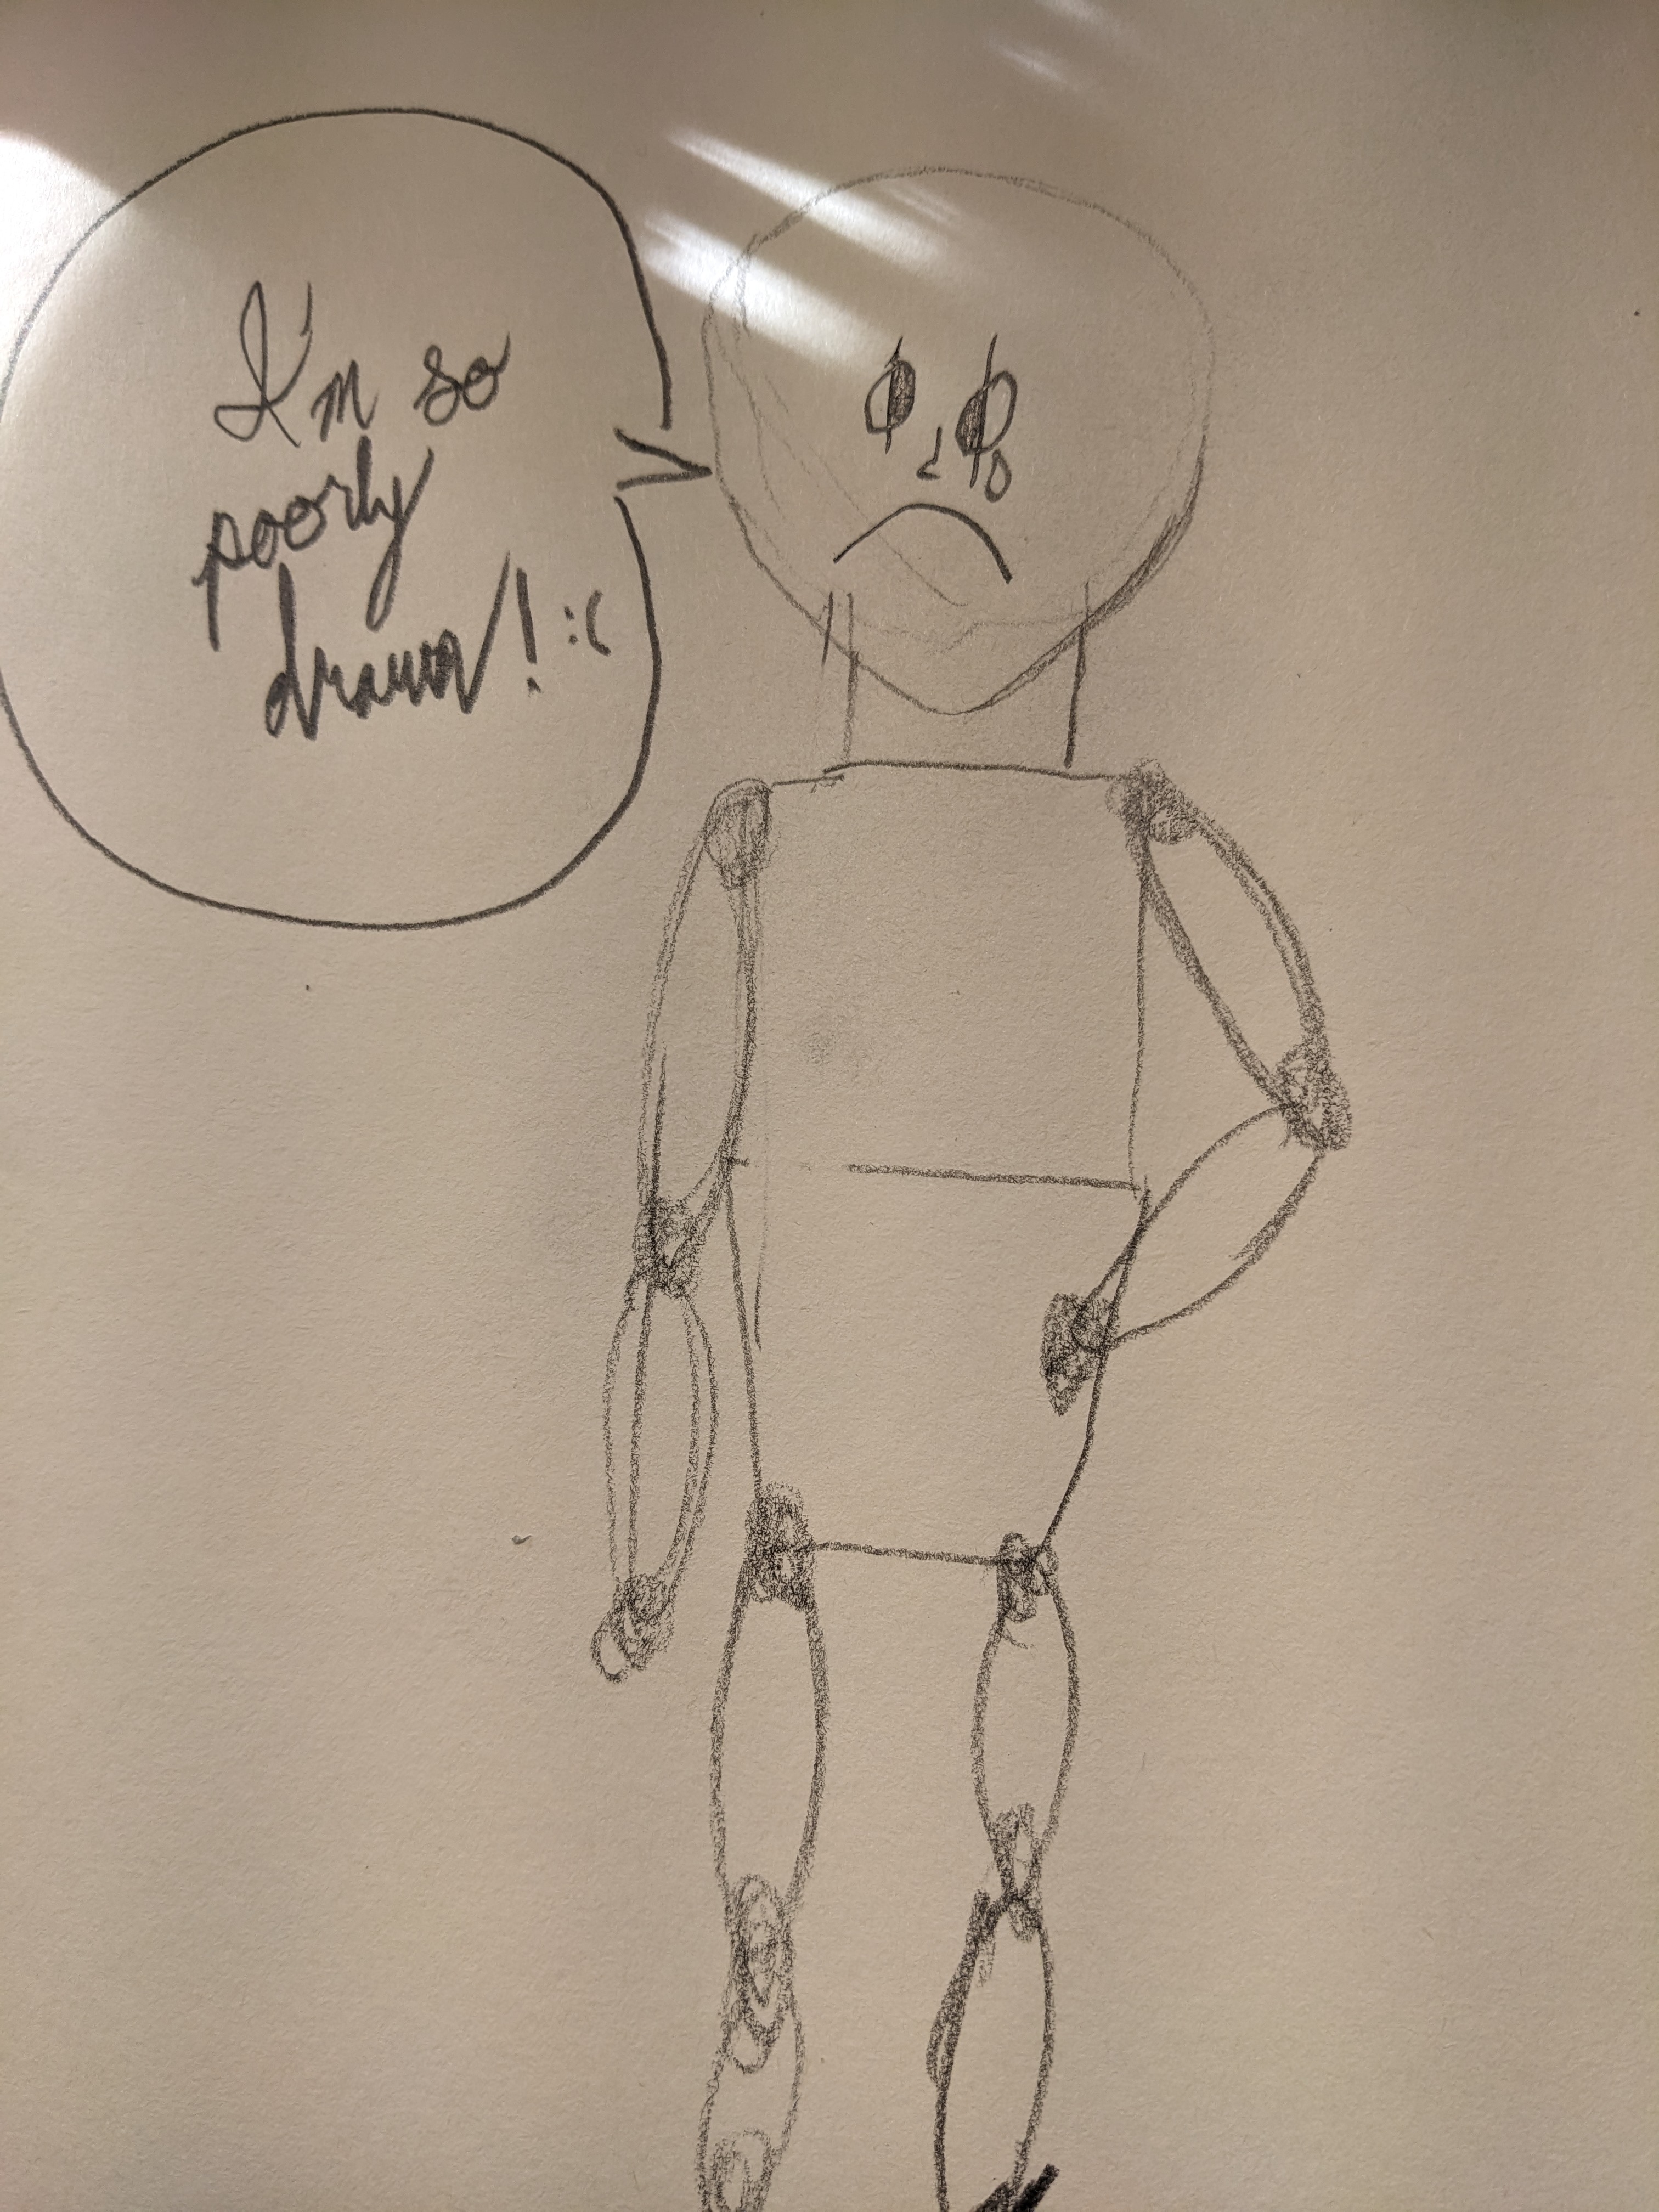 I'm so
poorly
drawn! :(